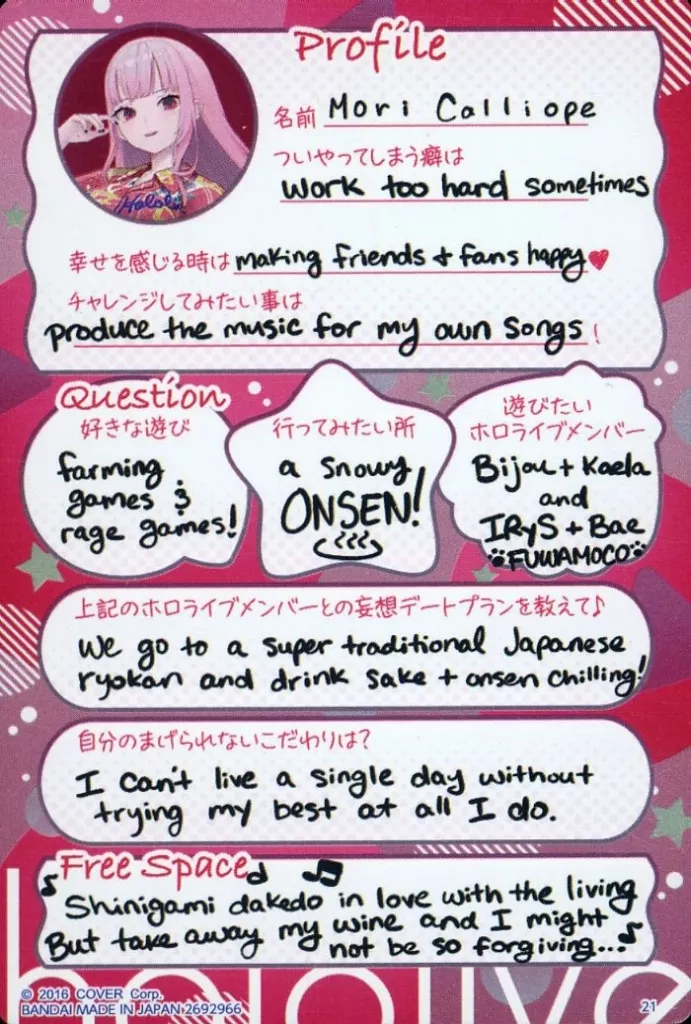 Profile
名前 Mori Calliope
ついやってしまう癖は
work too hard sometimes
幸せを感じる時は making friends + fans happy♥
チャレンジしてみたい事は
produce the music for my own songs!
Question
好きな遊び
farming
games &
rage games!
行ってみたい所
a snowy
ONSEN!
遊びたい
ホロライブメンバー
Bijou + Kaela
and
IRyS + Bae
FUWAMOCO
上記のホロライブメンバーとの妄想デートプランを教えて♪
We go to a super traditional Japanese
ryokan and drink sake + onsen chilling!
自分のまげられないこだわりは?
I can't live a single day without
trying my best at all I do.
Free Space
Shinigami dakedo in love with the living
But take away my wine and I might
not be so forgiving...♪
hololive
© 2016 COVER Corp.
BANDAI MADE IN JAPAN 2692966
21